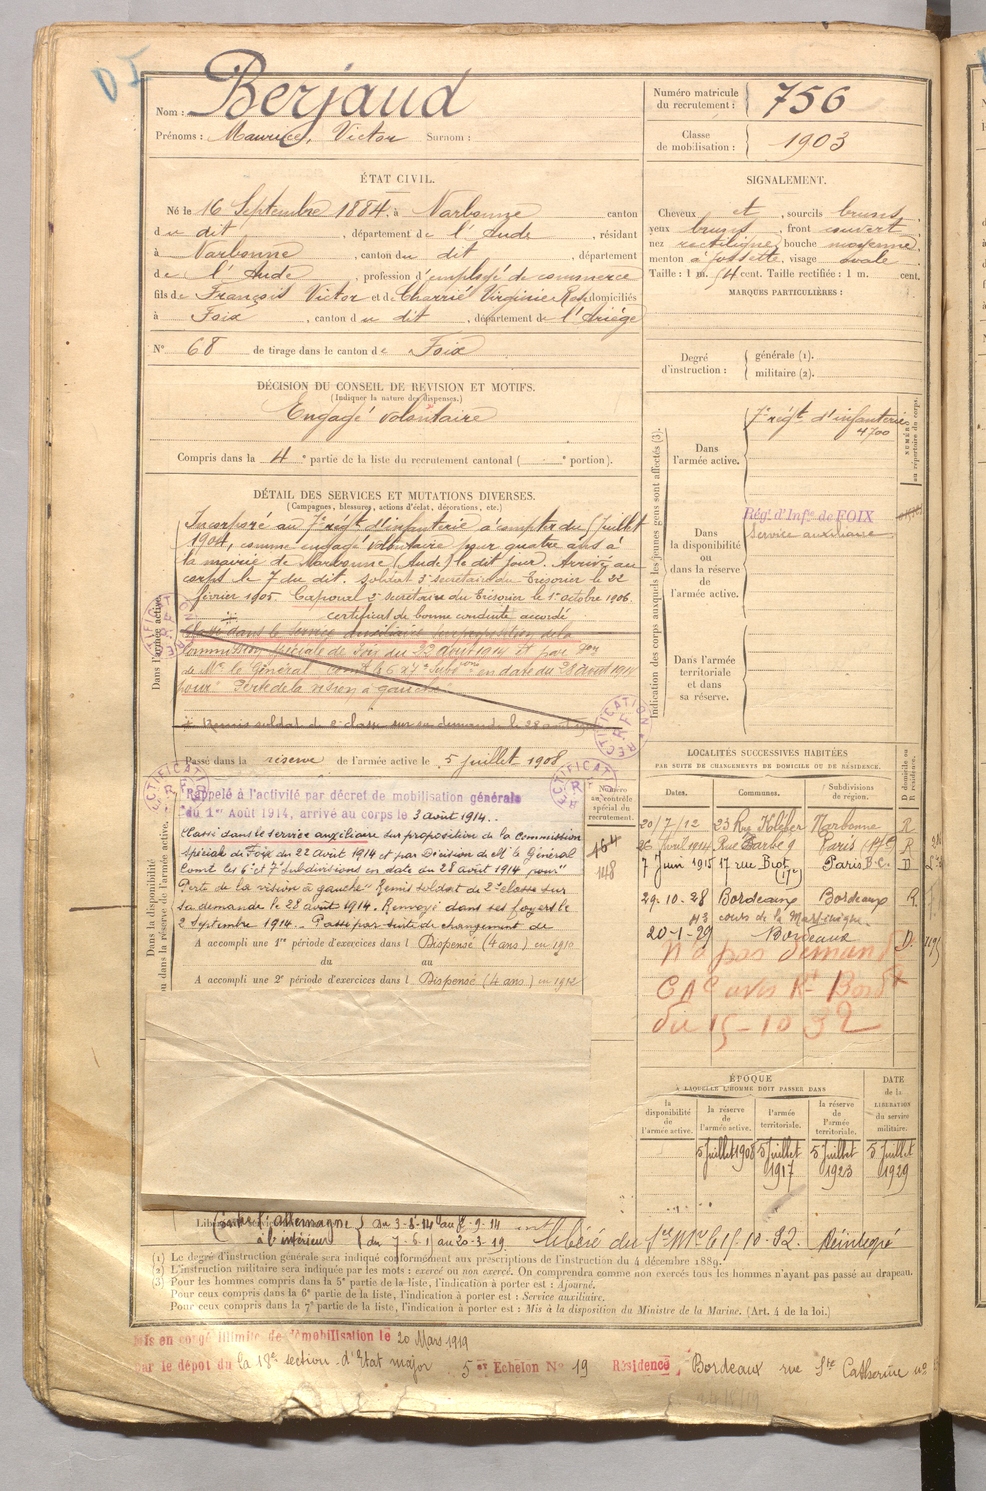 Nom : Berjaud
Prénoms : Maurice, Victor Surnom :
Numéro matricule du recrutement : 756
Classe de mobilisation : 1903
ÉTAT CIVIL.
Né le 16 Septembre 1884, à Narbonne canton
du dit, département de l'Aude, résidant
à Narbonne, canton du dit, département
de l'Aude, profession d'employé de commerce
fils de François Victor et de Charrié Virginie Rose domiciliés
à Foix, canton du dit, département de l'Ariège
N° 68 de tirage dans le canton de Foix
SIGNALEMENT.
Cheveux et, sourcils bruns,
yeux bruns, front couvert,
nez rectiligne, bouche moyenne,
menton à fossette, visage ovale.
Taille : 1 m. cent. Taille rectifiée : 1 m. cent.
MARQUES PARTICULIÈRES :
Degré d'instruction : générale (1).
militaire (2).
DÉCISION DU CONSEIL DE REVISION ET MOTIFS.
(Indiquer la nature des dispenses.)
Engagé volontaire
Compris dans la 4e partie de la liste du recrutement cantonal ( e portion).
DÉTAIL DES SERVICES ET MUTATIONS DIVERSES.
(Campagnes, blessures, actions d'éclat, décorations, etc.)
Dans l'armée active.
Incorporé au 7e régt d'infanterie à compter du 7 juillet
1904, comme engagé volontaire pour quatre ans à
la mairie de Narbonne (Aude) le dit jour. Arrivé au
corps le 7 du dit. Soldat 3e secrétaire du Trésorier le 22
février 1905. Caporal 2e secrétaire du Trésorier le 1er octobre 1906.
certificat de bonne conduite accordé
Classé dans le service auxiliaire sur proposition de la
Commission spéciale de Foix du 22 août 1914 et par Don
de Mr le Général Comt les 6 et 7e Subdons en date du 28 août 1914
pour : Perte de la vision à gauche
Remis soldat de 2e classe sur sa demande le 28 août
RECTIFICATION
RF
Passé dans la réserve de l'armée active le 5 juillet 1908
RECTIFICATION
RF
Dans la disponibilité ou dans la réserve de l'armée active.
Rappelé à l'activité par décret de mobilisation générale
du 1er Août 1914, arrivé au corps le 3 août 1914.
Classé dans le service auxiliaire sur proposition de la Commission
spéciale de Foix du 22 août 1914 et par Décision de Mr le Général
Comt les 6e et 7e subdivisions en date du 28 août 1914 pour "
Perte de la vision à gauche" Remis soldat de 2e classe sur
sa demande le 28 août 1914. Renvoyé dans ses foyers le
2 Septembre 1914. Passé par suite de changement de
A accompli une 1re période d'exercices dans l Dispensé (4 ans) en 1910
du au
A accompli une 2e période d'exercices dans l Dispensé (4 ans) en 1912
Numéro au contrôle spécial du recrutement.
464
148
Indication des corps auxquels les jeunes gens sont affectés (3).
NUMÉRO au répertoire du corps.
Dans l'armée active.
7e régt d'infanterie
4700
Dans la disponibilité ou dans la réserve de l'armée active.
Régt d'Infie de FOIX
Service auxiliaire
Dans l'armée territoriale et dans sa réserve.
LOCALITÉS SUCCESSIVES HABITÉES
PAR SUITE DE CHANGEMENTS DE DOMICILE OU DE RÉSIDENCE.
Dates. Communes. Subdivisions de région. D domicile ou R résidence.
20/7/12 23 Rue Kléber Narbonne R
26 avril 1914 Rue Barbe 9 Paris R
7 Juin 1915 17 rue Biot (17e) Paris B.C. D
29-10-28 Bordeaux Bordeaux R
113 cours de la Martinique
20-1-29 Bordeaux D
N'a pas demandé
CAC avis Rt Bord
du 15-10 32
ÉPOQUE
À LAQUELLE L'HOMME DOIT PASSER DANS
la disponibilité de l'armée active.
la réserve de l'armée active.
l'armée territoriale.
la réserve de l'armée territoriale.
DATE de la LIBÉRATION du service militaire.
5 Juillet 1908
5 Juillet 1917
5 Juillet 1923
5 Juillet 1929
Contre l'Allemagne du 3-8-14 au 2-9-14
à l'intérieur du 7-6-1 au 20-3-19
libéré du Ser Mre le 15-10-32. Réintégré
(1) Le degré d'instruction générale sera indiqué conformément aux prescriptions de l'instruction du 4 décembre 1889.
(2) L'instruction militaire sera indiquée par les mots : exercé ou non exercé. On comprendra comme non exercés tous les hommes n'ayant pas passé au drapeau.
(3) Pour les hommes compris dans la 5e partie de la liste, l'indication à porter est : Ajourné.
Pour ceux compris dans la 6e partie de la liste, l'indication à porter est : Service auxiliaire.
Pour ceux compris dans la 7e partie de la liste, l'indication à porter est : Mis à la disposition du Ministre de la Marine. (Art. 4 de la loi.)
Mis en congé illimité de démobilisation le 20 Mars 1919
par le dépôt du la 18e section d'Etat major 5e Echelon N° 19 Résidence, Bordeaux rue Ste Catherine no